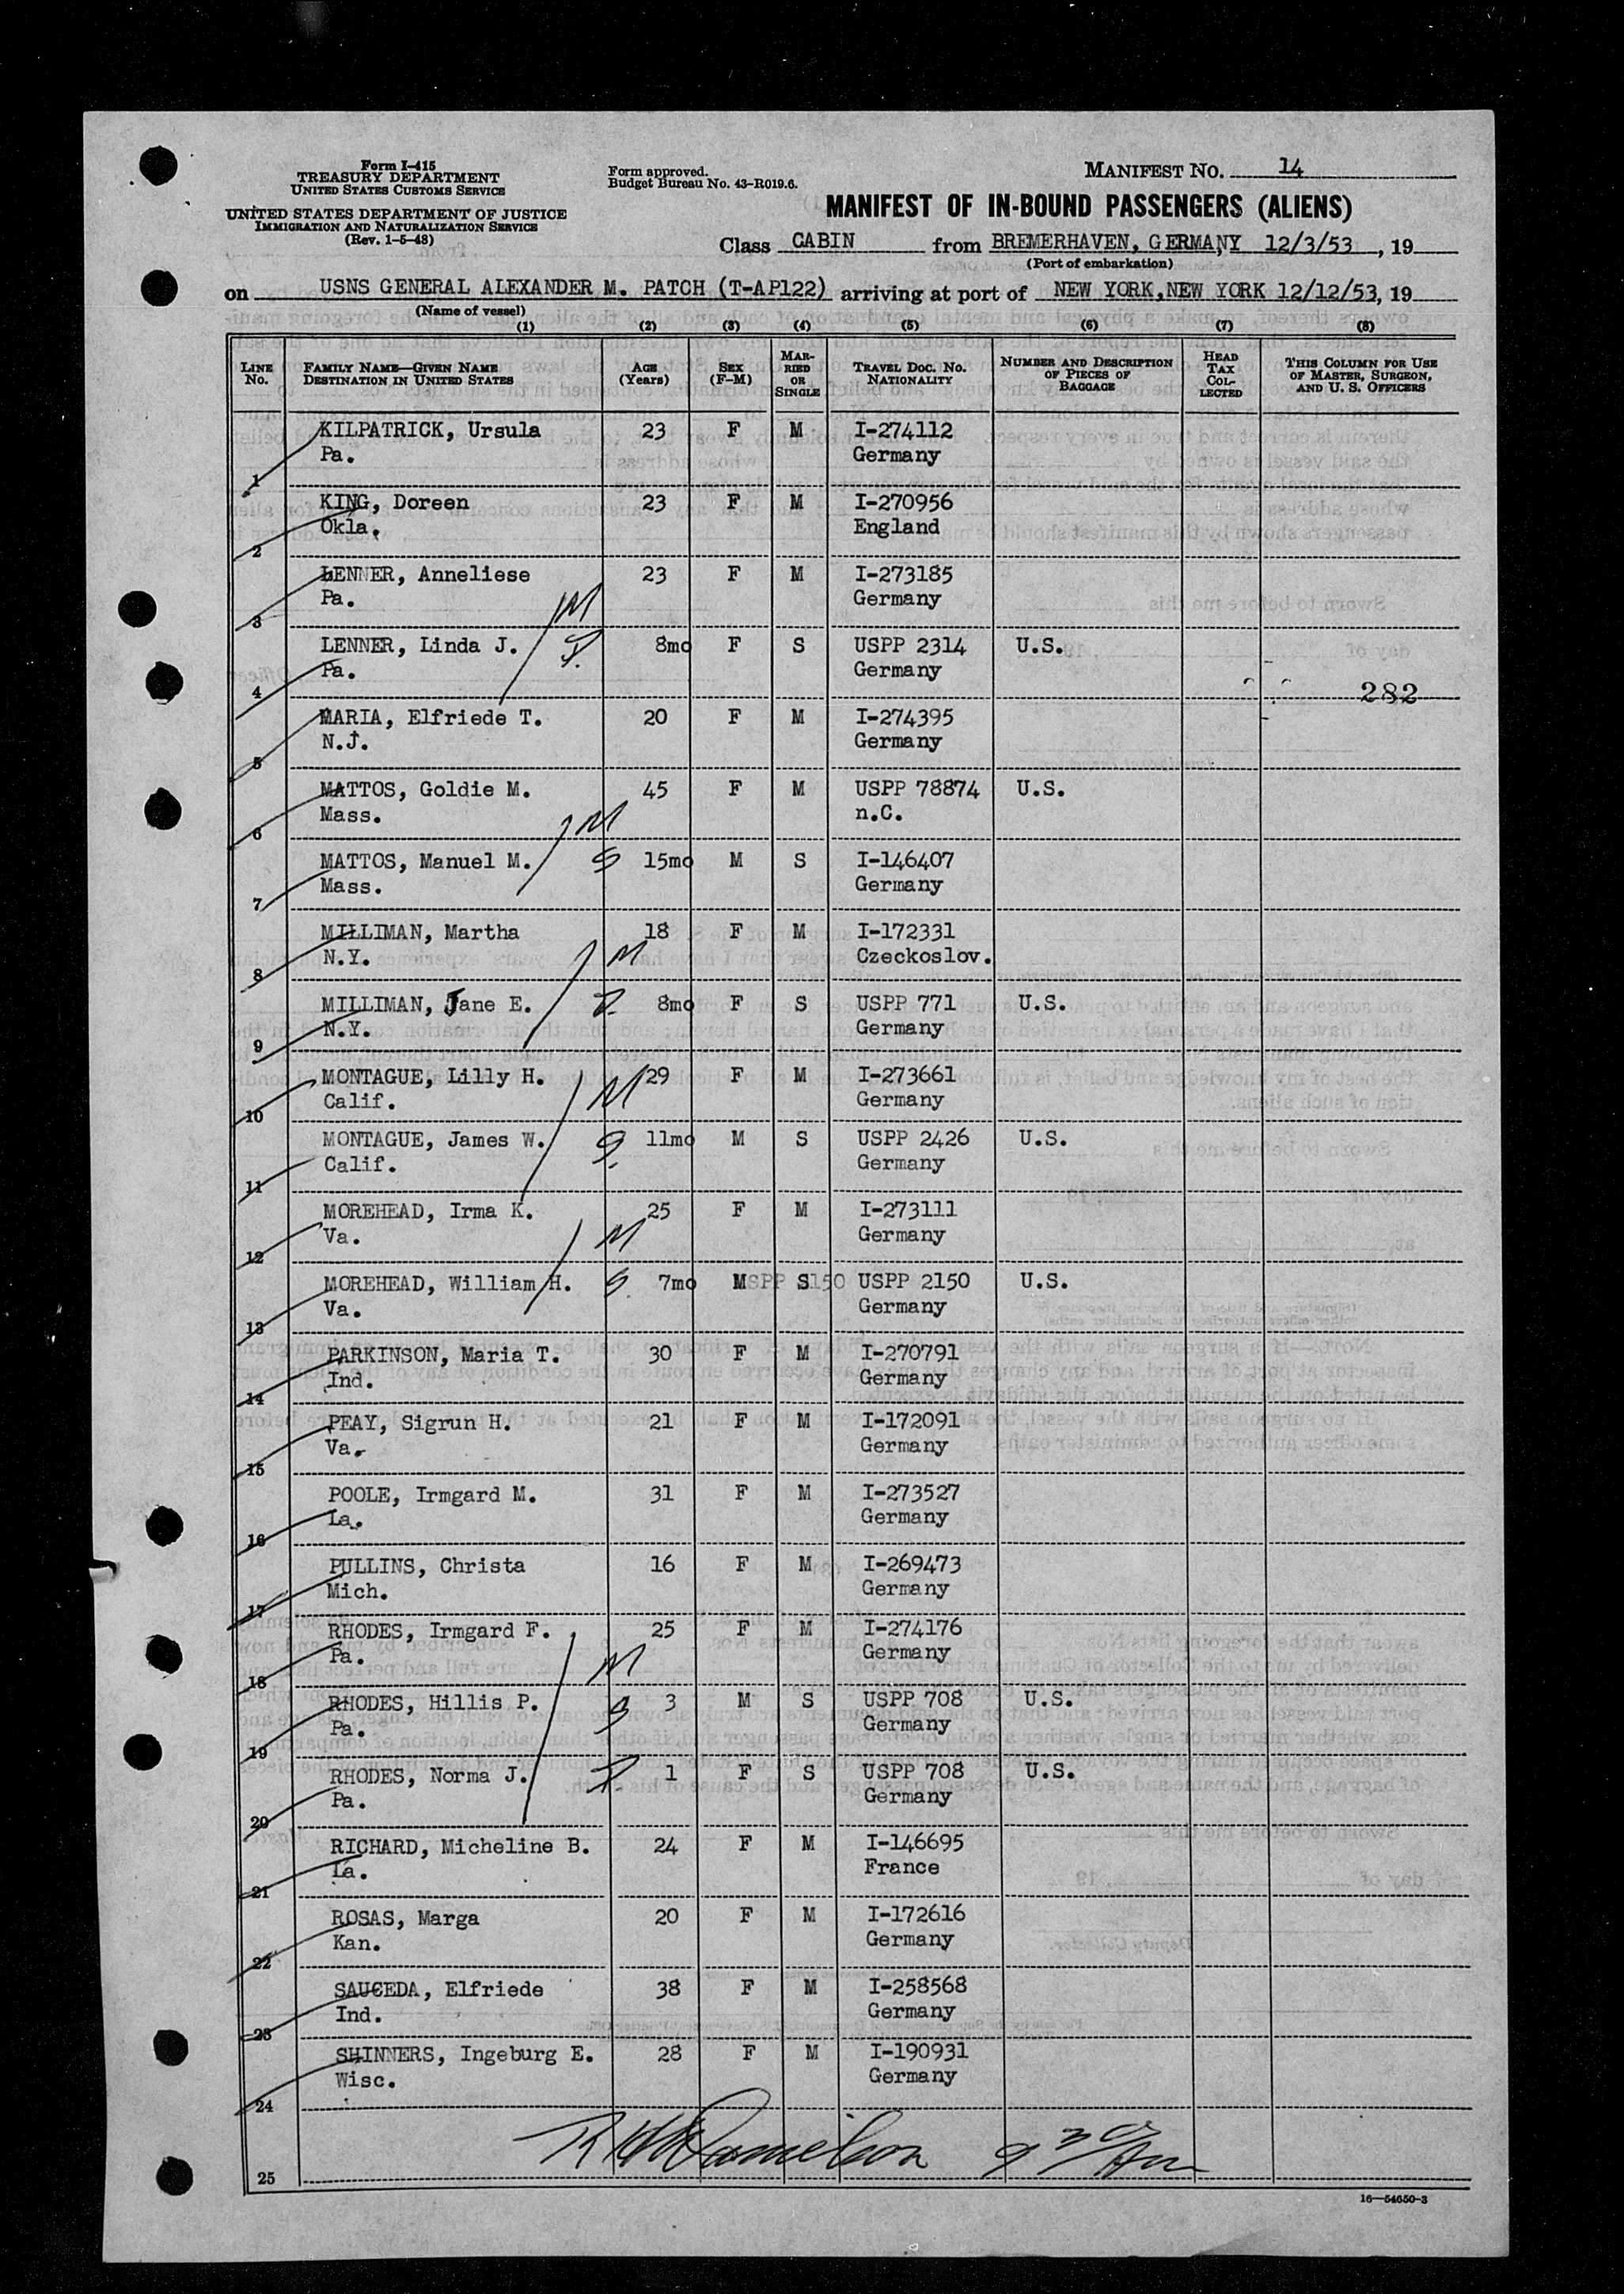 Form I-415
TREASURY DEPARTMENT
UNITED STATES CUSTOMS SERVICE
UNITED STATES DEPARTMENT OF JUSTICE
IMMIGRATION AND NATURALIZATION SERVICE
(Rev. 1-5-48)
Form approved.
Budget Bureau No. 43-R019.6.
MANIFEST No. 14
MANIFEST OF IN-BOUND PASSENGERS (ALIENS)
Class CABIN from BREMERHAVEN, GERMANY 12/3/53, 19
(Port of embarkation)
on USNS GENERAL ALEXANDER M. PATCH (T-AP122) arriving at port of NEW YORK, NEW YORK 12/12/53, 19
(Name of vessel)
(1) (2) (3) (4) (5) (6) (7) (8)
LINE No. FAMILY NAME—GIVEN NAME DESTINATION IN UNITED STATES AGE (Years) SEX (F-M) MARRIED OR SINGLE TRAVEL DOC. NO. NATIONALITY NUMBER AND DESCRIPTION OF PIECES OF BAGGAGE HEAD TAX COLLECTED THIS COLUMN FOR USE OF MASTER, SURGEON, AND U. S. OFFICERS
KILPATRICK, Ursula 23 F M I-274112
1 Pa. Germany
KING, Doreen 23 F M I-270956
2 Okla. England
LENNER, Anneliese 23 F M I-273185
3 Pa. M Germany
LENNER, Linda J. 8mo F S USPP 2314 U.S.
4 Pa. Germany
282
MARIA, Elfriede T. 20 F M I-274395
5 N.J. Germany
MATTOS, Goldie M. 45 F M USPP 78874 U.S.
6 Mass. M n.C.
MATTOS, Manuel M. S 15mo M S I-146407
7 Mass. Germany
MILLIMAN, Martha 18 F M I-172331
8 N.Y. M Czeckoslov.
MILLIMAN, Jane E. 8mo F S USPP 771 U.S.
9 N.Y. Germany
MONTAGUE, Lilly H. M 29 F M I-273661
10 Calif. Germany
MONTAGUE, James W. S 11mo M S USPP 2426 U.S.
11 Calif. Germany
MOREHEAD, Irma K. 25 F M I-273111
12 Va. M Germany
MOREHEAD, William H. S 7mo M S USPP 2150 U.S.
13 Va. Germany
PARKINSON, Maria T. 30 F M I-270791
14 Ind. Germany
PEAY, Sigrun H. 21 F M I-172091
15 Va. Germany
POOLE, Irmgard M. 31 F M I-273527
16 La. Germany
PULLINS, Christa 16 F M I-269473
17 Mich. Germany
RHODES, Irmgard F. 25 F M I-274176
18 Pa. M Germany
RHODES, Hillis P. S 3 M S USPP 708 U.S.
19 Pa. Germany
RHODES, Norma J. 1 F S USPP 708 U.S.
20 Pa. Germany
RICHARD, Micheline B. 24 F M I-146695
21 La. France
ROSAS, Marga 20 F M I-172616
22 Kan. Germany
SAUCEDA, Elfriede 38 F M I-258568
23 Ind. Germany
SHINNERS, Ingeburg E. 28 F M I-190931
24 Wisc. Germany
25
16—54650-3